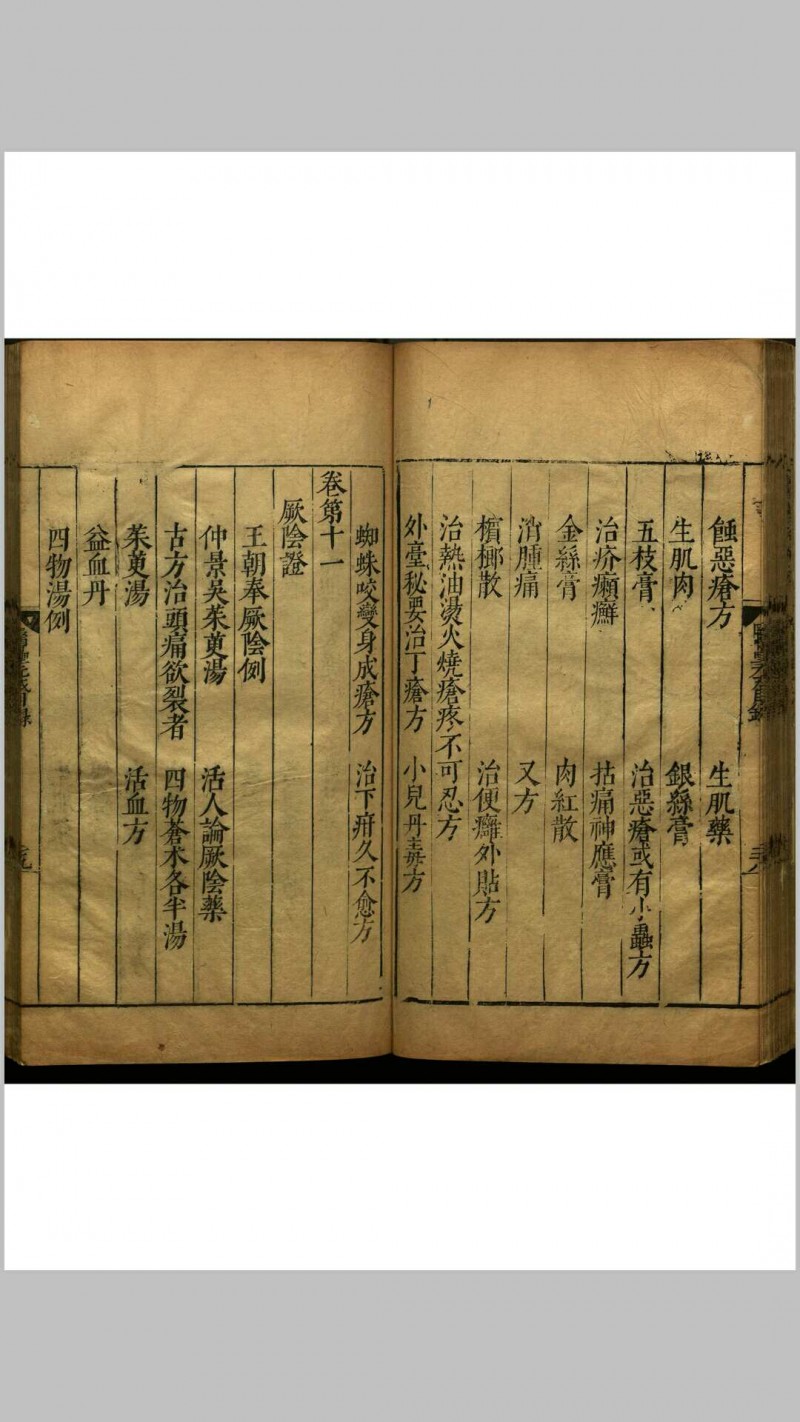 蝕惡瘡方　生肌藥
生肌肉　銀絲膏
五枝膏　治惡瘡或有小蟲方
治疥癩癬　拈痛神應膏
金絲膏　肉紅散
消腫痛　又方
檳榔散　治便癰外貼方
治熱油湯火燒瘡疼不可忍方
外臺秘要治丁瘡方　小兒丹毒方
蜘蛛咬變身成瘡方　治下疳久不愈方
卷第十一
厥陰證
王朝奉厥陰例
仲景吳茱萸湯　活人論厥陰藥
古方治頭痛欲裂者　四物蒼木各半湯
茱萸湯　活血方
益血丹
四物湯例